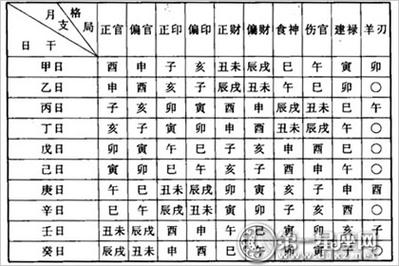 月支 格局
日干 正官 偏官 正印 偏印 正财 偏财 食神 伤官 建禄 羊刃
甲日 酉 申 子 亥 丑未 辰戌 巳 午 寅 卯
乙日 申 酉 亥 子 辰戌 丑未 午 巳 卯 〇
丙日 子 亥 卯 寅 酉 申 辰戌 丑未 巳 午
丁日 亥 子 寅 卯 申 酉 丑未 辰戌 午 〇
戊日 卯 寅 午 巳 子 亥 申 酉 巳 〇
己日 寅 卯 巳 午 亥 子 酉 申 午 〇
庚日 午 巳 丑未 辰戌 卯 寅 亥 子 申 酉
辛日 巳 午 辰戌 丑未 寅 卯 子 亥 酉 〇
壬日 丑未 辰戌 酉 申 午 巳 寅 卯 亥 子
癸日 辰戌 丑未 申 酉 巳 午 卯 寅
第一星座网